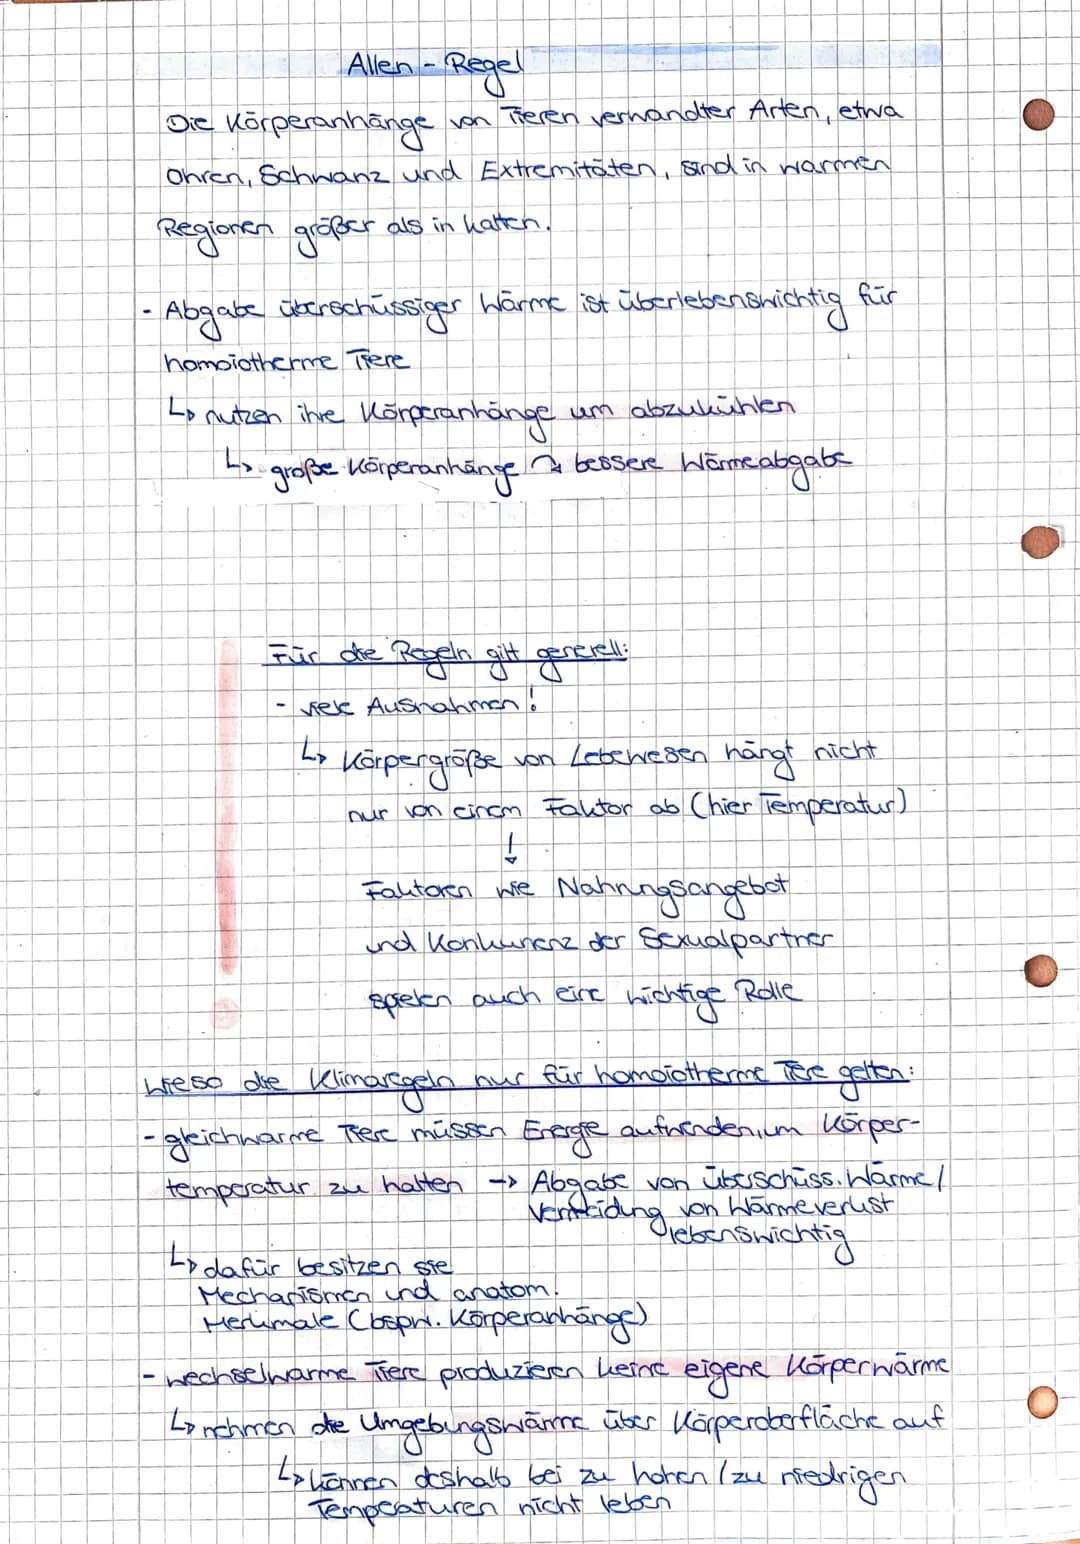 Allen - Regel
Die Körperanhänge von Tieren verwandter Arten, etwa
Ohren, Schwanz und Extremitäten, sind in warmen
Regionen größer als in kalten.
- Abgabe überschüssiger Wärme ist überlebenswichtig für
homoiotherme Tiere
↳ nutzen ihre Körperanhänge um abzukühlen
↳ große Körperanhänge ↷ bessere Wärmeabgabe
Für die Regeln gilt generell:
- viele Ausnahmen!
↳ Körpergröße von Lebewesen hängt nicht
nur von einem Faktor ab (hier Temperatur)
↓
Faktoren wie Nahrungsangebot
und Konkurrenz der Sexualpartner
spielen auch eine wichtige Rolle
Wieso die Klimaregeln nur für homoiotherme Tiere gelten:
- gleichwarme Tiere müssen Energie aufwenden, um Körper-
temperatur zu halten → Abgabe von überschüss. Wärme/
Vermeidung von Wärmeverlust
lebenswichtig
↳ dafür besitzen sie
Mechanismen und anatom.
Merkmale (bspw. Körperanhänge)
- wechselwarme Tiere produzieren keine eigene Körperwärme
↳ nehmen die Umgebungswärme über Körperoberfläche auf
↳ können deshalb bei zu hohen / zu niedrigen
Temperaturen nicht leben